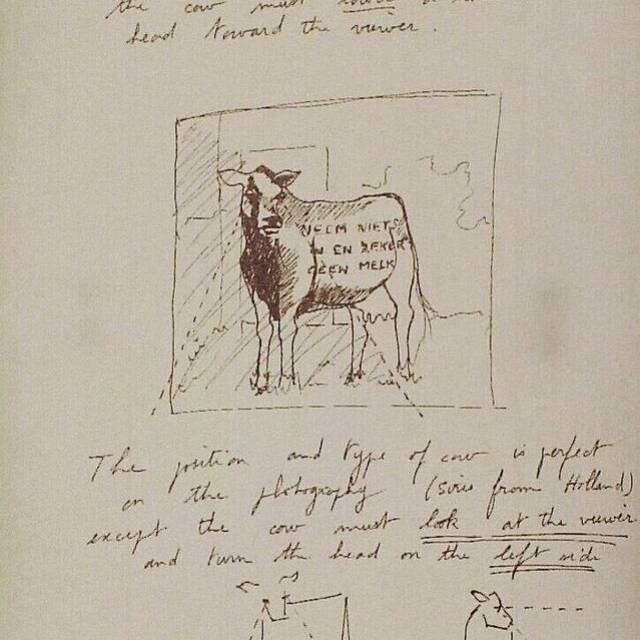 the cow must lower
head toward the viewer.
NEEM NIETS
IN EN ZEKER
GEEN MELK
The position and type of cow is perfect
on the photography (from Holland)
except the cow must look at the viewer
and turn the head on the left side